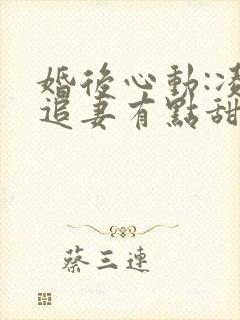 婚後心動:凌
追妻有點甜
蔡三連